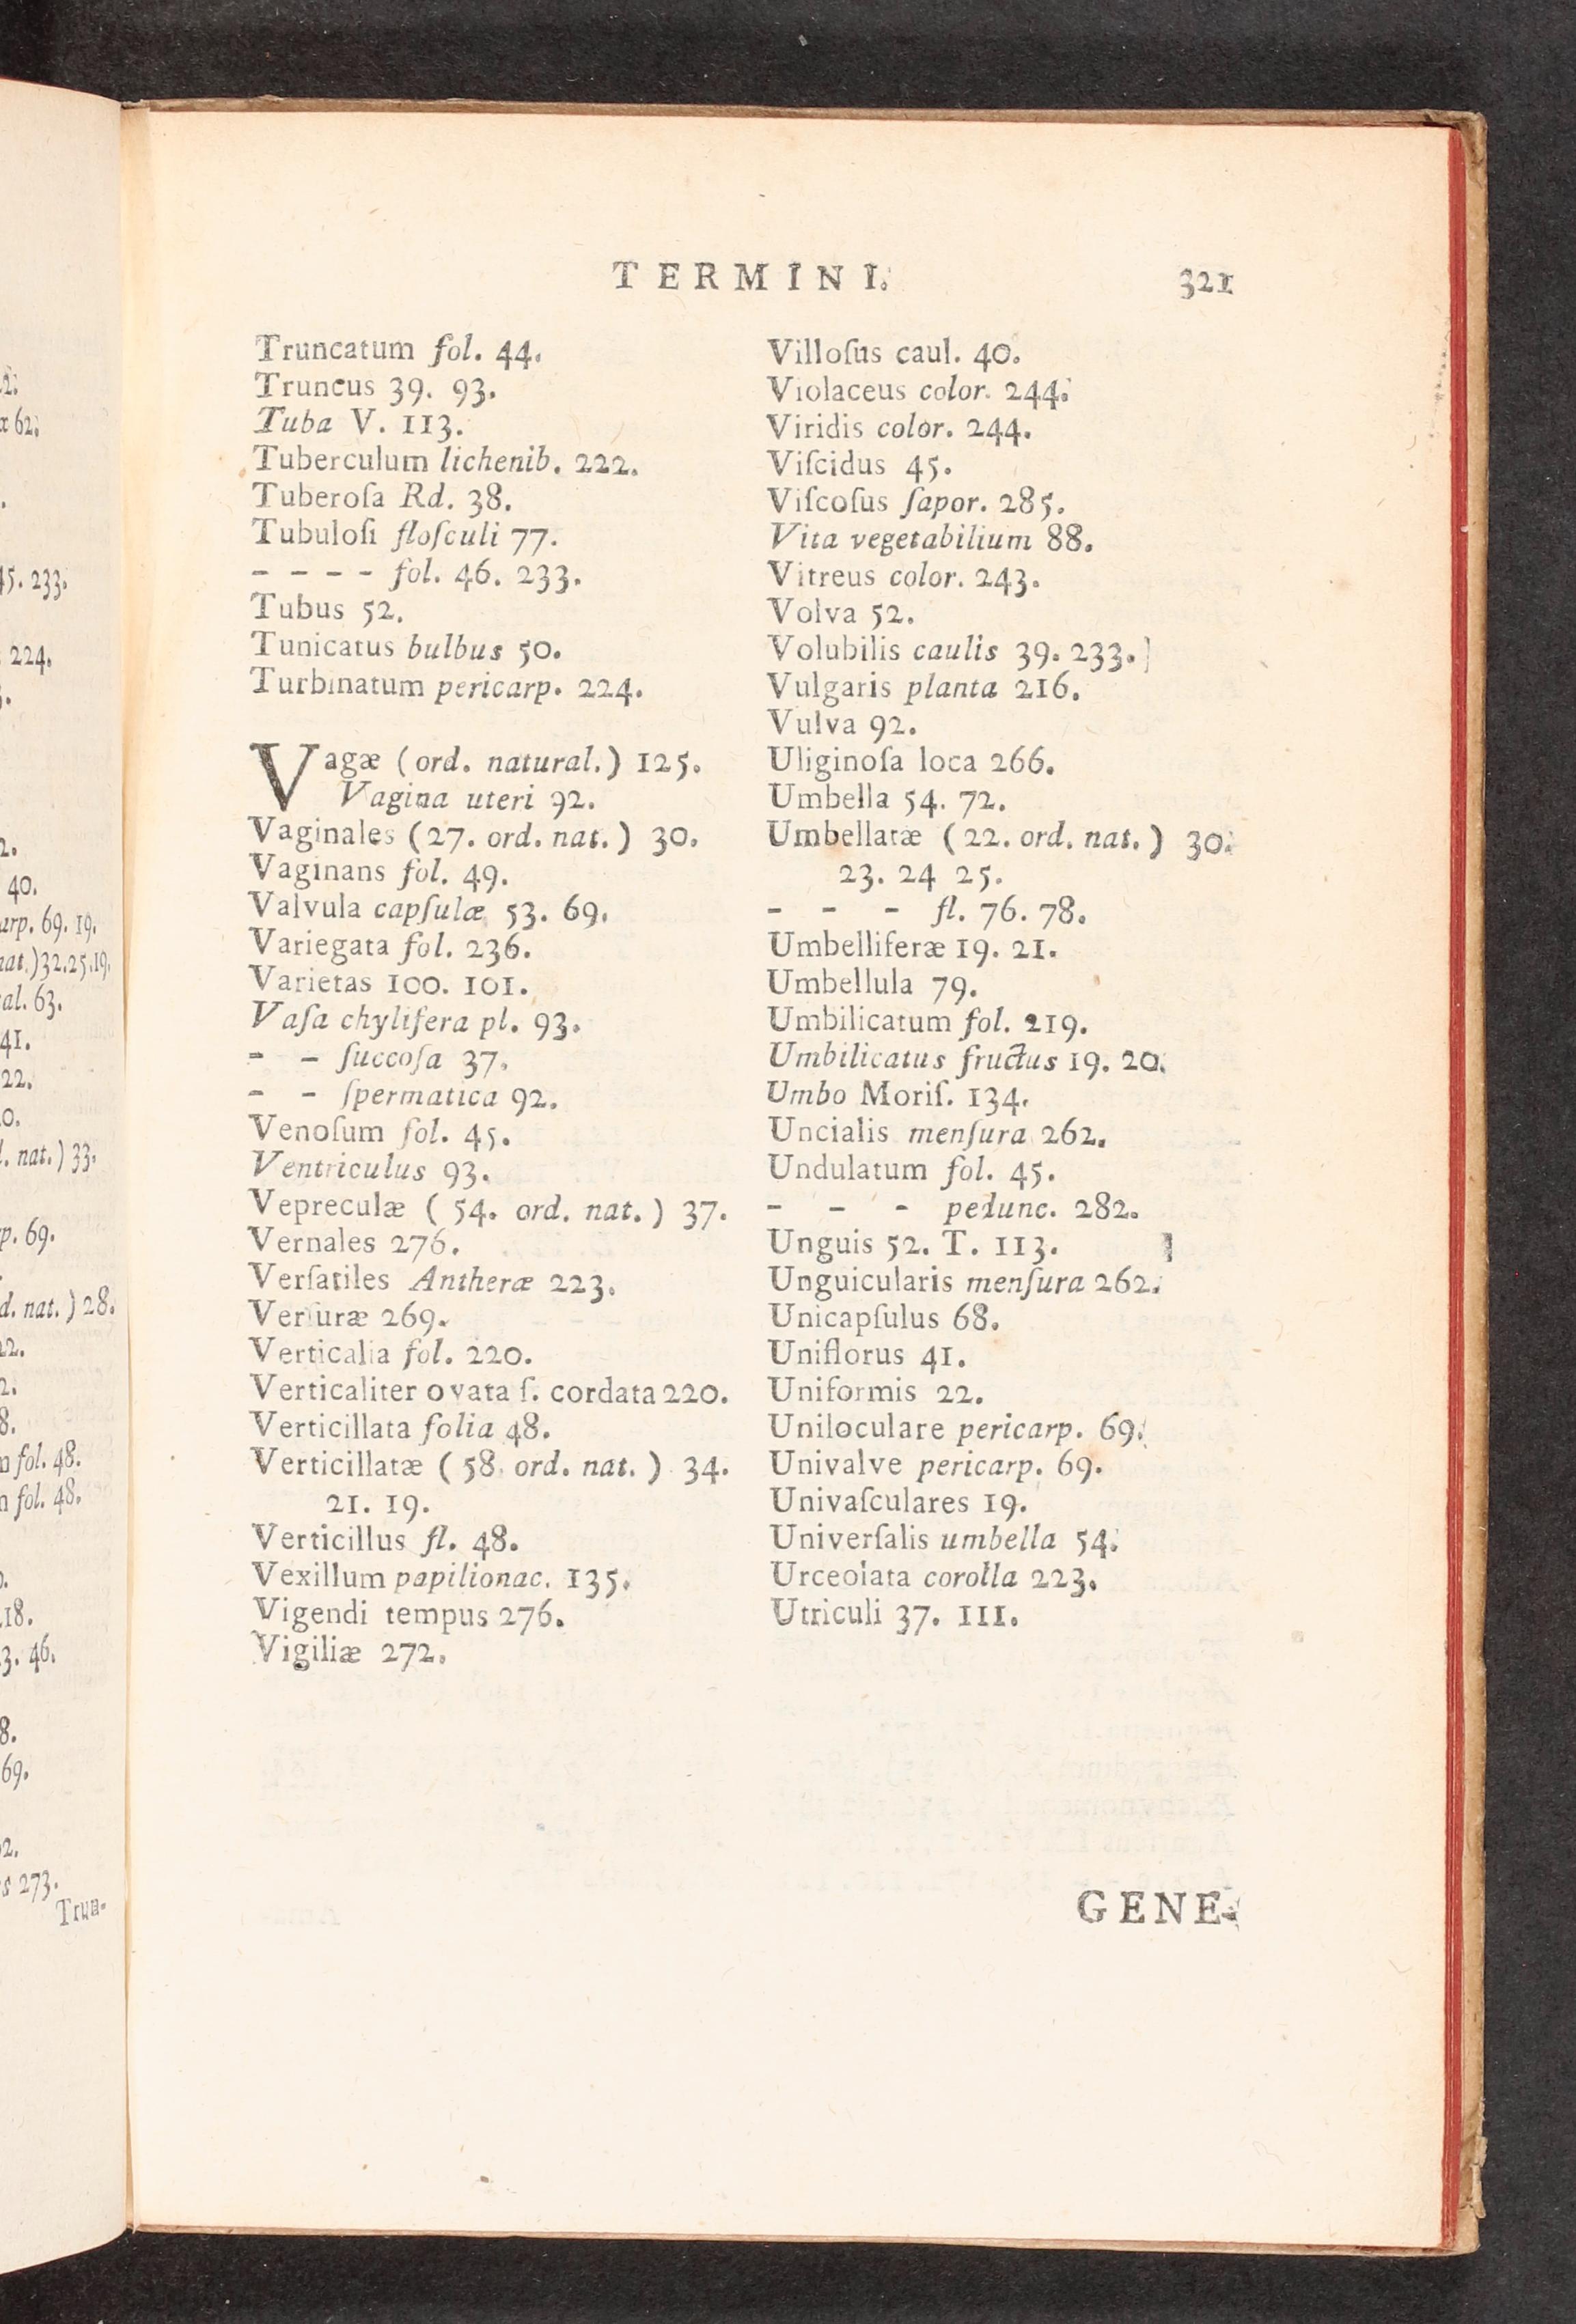 TERMINI. 321
Truncatum fol. 44.
Truncus 39. 93.
Tuba V. 113.
Tuberculum lichenib. 222.
Tuberoſa Rd. 38.
Tubuloſi floſculi 77.
- - - - fol. 46. 233.
Tubus 52.
Tunicatus bulbus 50.
Turbinatum pericarp. 224.
Vagæ (ord. natural.) 125.
Vagina uteri 92.
Vaginales (27. ord. nat.) 30.
Vaginans fol. 49.
Valvula capſulæ 53. 69.
Variegata fol. 236.
Varietas 100. 101.
Vaſa chylifera pl. 93.
- - ſuccoſa 37.
- - ſpermatica 92.
Venoſum fol. 45.
Ventriculus 93.
Vepreculæ (54. ord. nat.) 37.
Vernales 276.
Verſatiles Antheræ 223.
Verſuræ 269.
Verticalia fol. 220.
Verticaliter ovata ſ. cordata 220.
Verticillata folia 48.
Verticillatæ (58. ord. nat.) 34.
21. 19.
Verticillus fl. 48.
Vexillum papilionac. 135.
Vigendi tempus 276.
Vigiliæ 272.
Villoſus caul. 40.
Violaceus color. 244.
Viridis color. 244.
Viſcidus 45.
Viſcoſus ſapor. 285.
Vita vegetabilium 88.
Vitreus color. 243.
Volva 52.
Volubilis caulis 39. 233.
Vulgaris planta 216.
Vulva 92.
Uliginoſa loca 266.
Umbella 54. 72.
Umbellatæ (22. ord. nat.) 30.
23. 24 25.
- - - fl. 76. 78.
Umbelliferæ 19. 21.
Umbellula 79.
Umbilicatum fol. 219.
Umbilicatus fructus 19. 20.
Umbo Moriſ. 134.
Uncialis menſura 262.
Undulatum fol. 45.
- - - pedunc. 282.
Unguis 52. T. 113.
Unguicularis menſura 262.
Unicapſulus 68.
Uniflorus 41.
Uniformis 22.
Uniloculare pericarp. 69.
Univalve pericarp. 69.
Univaſculares 19.
Univerſalis umbella 54.
Urceolata corolla 223.
Utriculi 37. 111.
GENE-